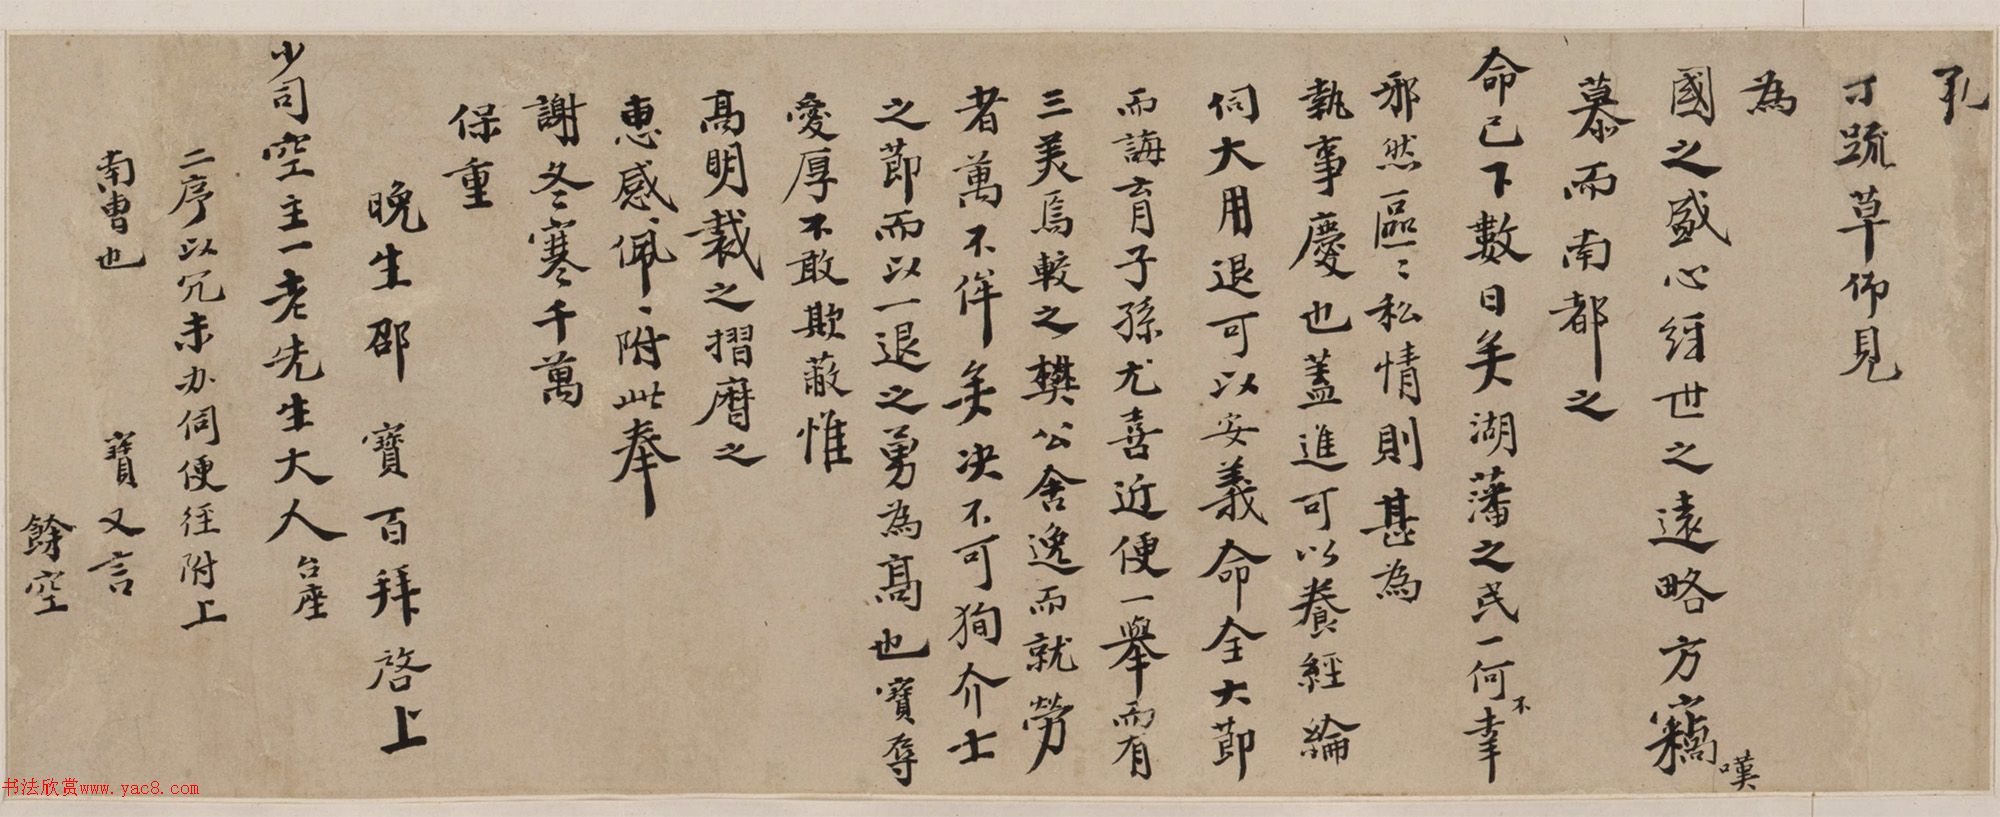 孔
寸疏草仰見
為
國之盛心經世之遠略方竊嘆
慕而南都之
命已下數日矣湖藩之民一何不幸
邪然區〻私情則甚為
執事慶也蓋進可以養經綸
伺大用退可以安義命全大節
而誨育子孫尤喜近便一舉而有
三美焉較之樊公舍逸而就勞
者萬不侔矣決不可狥介士
之節而以一退之勇為高也寶辱
愛厚不敢欺蔽惟
高明裁之摺磨之
惠感〻佩〻附此奉
謝冬寒千萬
保重
晚生邵寶百拜啓上
少司空主一老先生大人台座
二序以冗未办伺便径附上
南曹也 寶又言
餘空
书法欣赏www.yac8.com